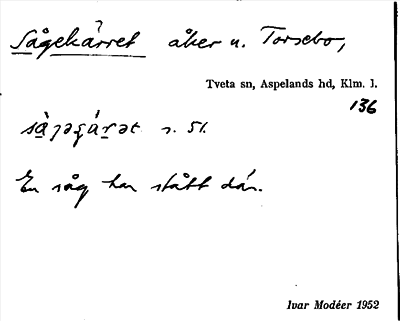 Sågekärret åker u. Torsebo,
Tveta sn, Aspelands hd, Klm. l.
136
s. 51.
En såg har stått där.
Ivar Modéer 1952